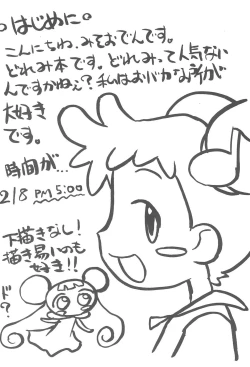 ○はじめに○
こんにちわ、みそおでんです。
どれみ本です。どれみって人気ない
んですかねぇ?私はおバカな所が
大好き
です。
時間が…
2/8 PM5:00
下描きなし!
描き易いのも
好き!!
ド?